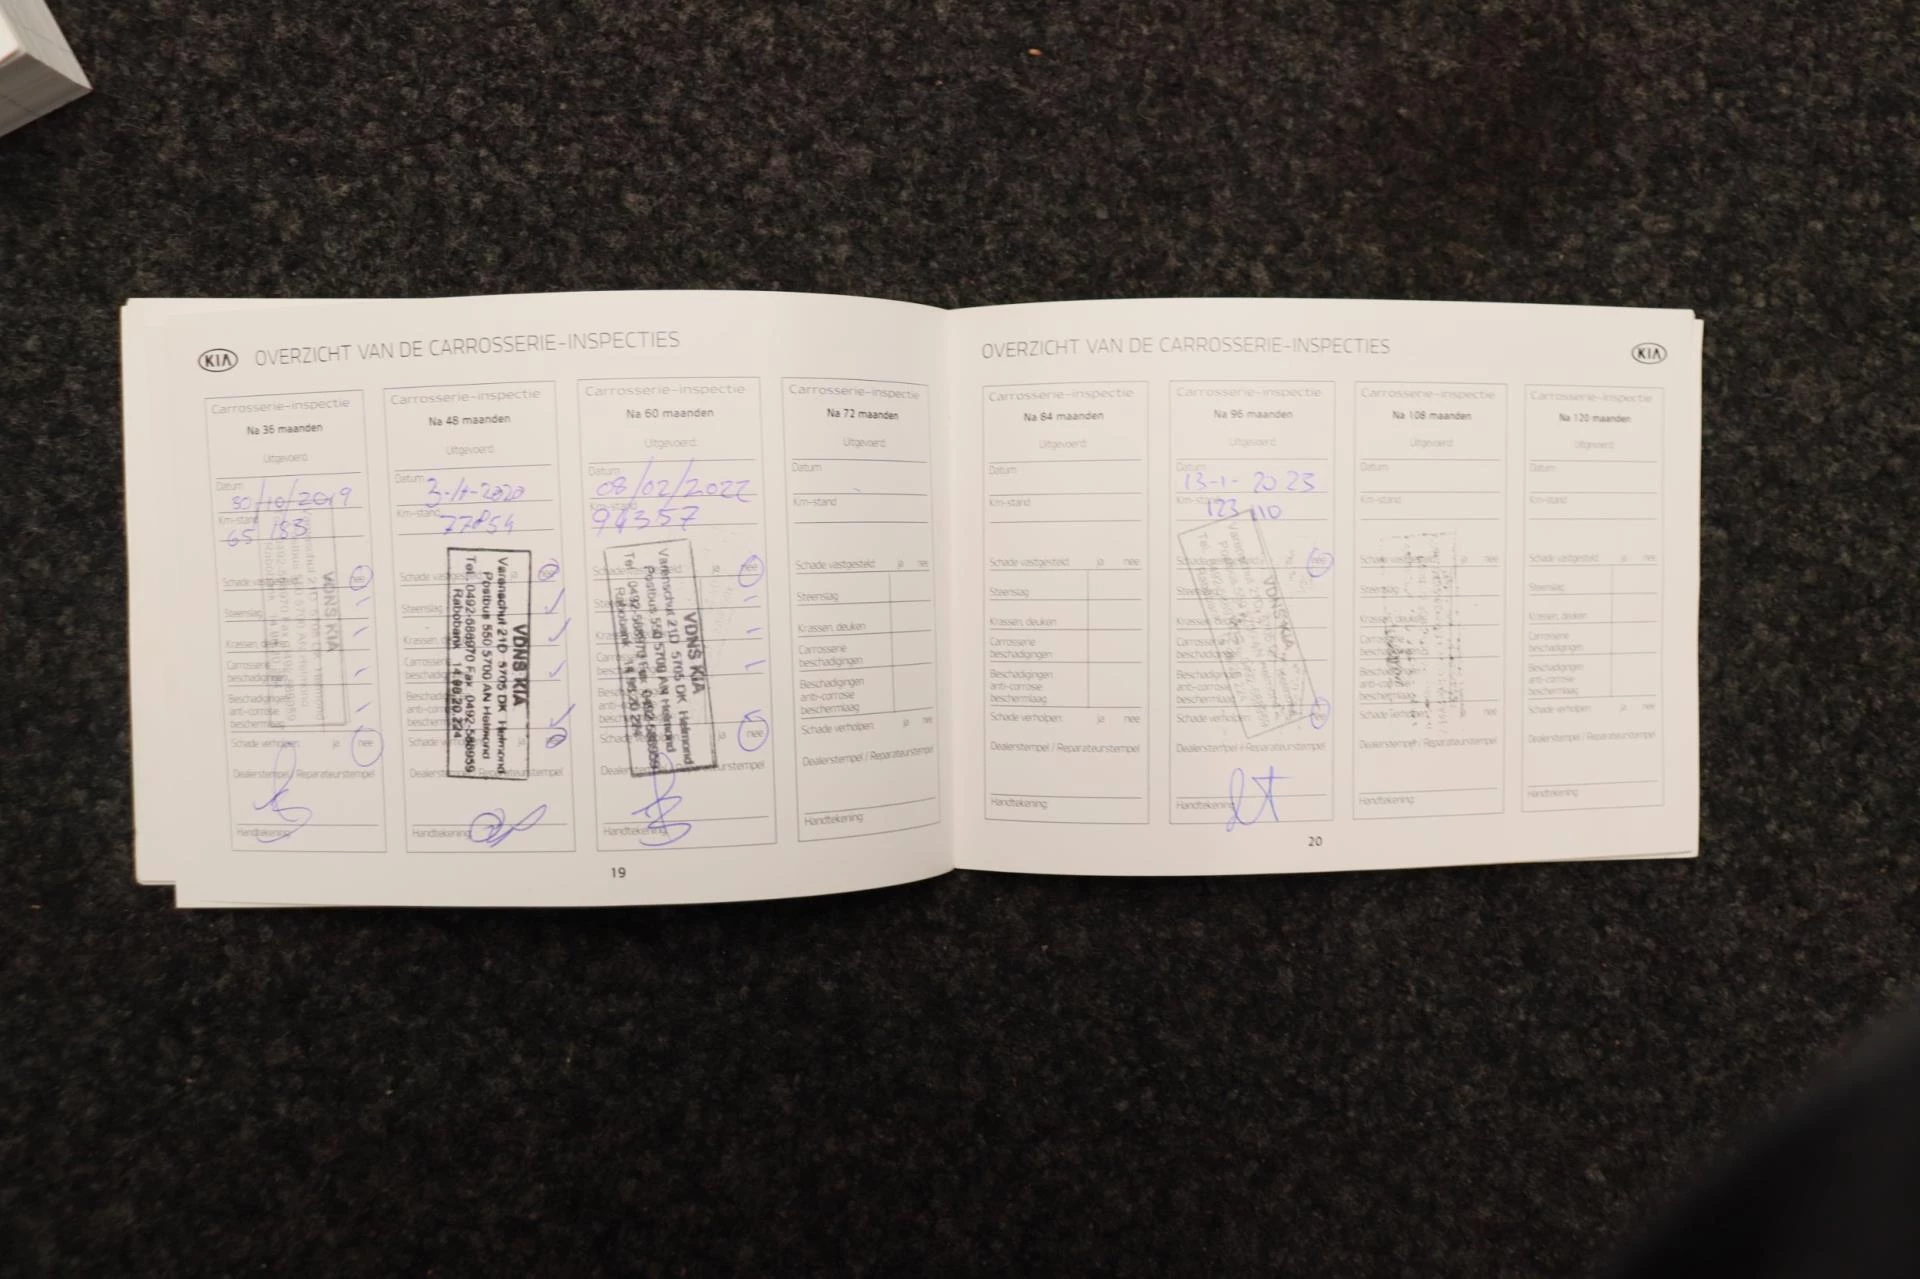 KIA OVERZICHT VAN DE CARROSSERIE-INSPECTIES
Carrosserie-inspectie
Na 36 maanden
Uitgevoerd:
Datum
30/10/2019
Km-stand
65 183
Schade vastgesteld: nee
Steenslag
Krassen, deuken
Carrosserie
beschadigingen
Beschadigingen
anti-corrosie
beschermlaag
Schade verholpen: ja nee
Dealerstempel / Reparateurstempel
Handtekening:
VDNS KIA
Carrosserie-inspectie
Na 48 maanden
Uitgevoerd:
Datum
3-11-2020
Km-stand
77854
Schade vastgesteld: ja nee
Steenslag
Krassen,
VDNS KIA
Varenschut 21D 5705 DK Helmond
Postbus 550 5700 AN Helmond
Tel. 0492-588970 Fax 0492-588959
Rabobank
Dealerstempel / Reparateurstempel
Handtekening:
Carrosserie-inspectie
Na 60 maanden
Uitgevoerd:
Datum
08/02/2022
Km-stand
94357
ja nee
VDNS KIA
Varenschut 21D 5705 DK Helmond
Postbus 550 5700 AN Helmond
Tel. 0492-588970 Fax 0492-588959
Rabobank
ja nee
Handtekening:
Carrosserie-inspectie
Na 72 maanden
Uitgevoerd:
Datum
Km-stand
Schade vastgesteld: ja nee
Steenslag
Krassen, deuken
Carrosserie
beschadigingen
Beschadigingen
anti-corrosie
beschermlaag
Schade verholpen: ja nee
Dealerstempel / Reparateurstempel
Handtekening:
19
OVERZICHT VAN DE CARROSSERIE-INSPECTIES KIA
Carrosserie-inspectie
Na 84 maanden
Uitgevoerd:
Datum
Km-stand
Schade vastgesteld: ja nee
Steenslag
Krassen, deuken
Carrosserie
beschadigingen
Beschadigingen
anti-corrosie
beschermlaag
Schade verholpen: ja nee
Dealerstempel / Reparateurstempel
Handtekening:
Carrosserie-inspectie
Na 96 maanden
Uitgevoerd:
Datum
13-1-2023
Km-stand
123 110
nee
VDNS KIA
Schade verholpen:
Dealerstempel / Reparateurstempel
Handtekening:
Carrosserie-inspectie
Na 108 maanden
Uitgevoerd:
Datum
Km-stand
Schade vastgesteld: ja nee
Steenslag
Krassen, deuken
Carrosserie
beschadigingen
Beschadigingen
anti-corrosie
beschermlaag
Schade verholpen: nee
Dealerstempel / Reparateurstempel
Handtekening:
Carrosserie-inspectie
Na 120 maanden
Uitgevoerd:
Datum
Km-stand
Schade vastgesteld: ja nee
Steenslag
Krassen, deuken
Carrosserie
beschadigingen
Beschadigingen
anti-corrosie
beschermlaag
Schade verholpen: ja nee
Dealerstempel / Reparateurstempel
Handtekening:
20